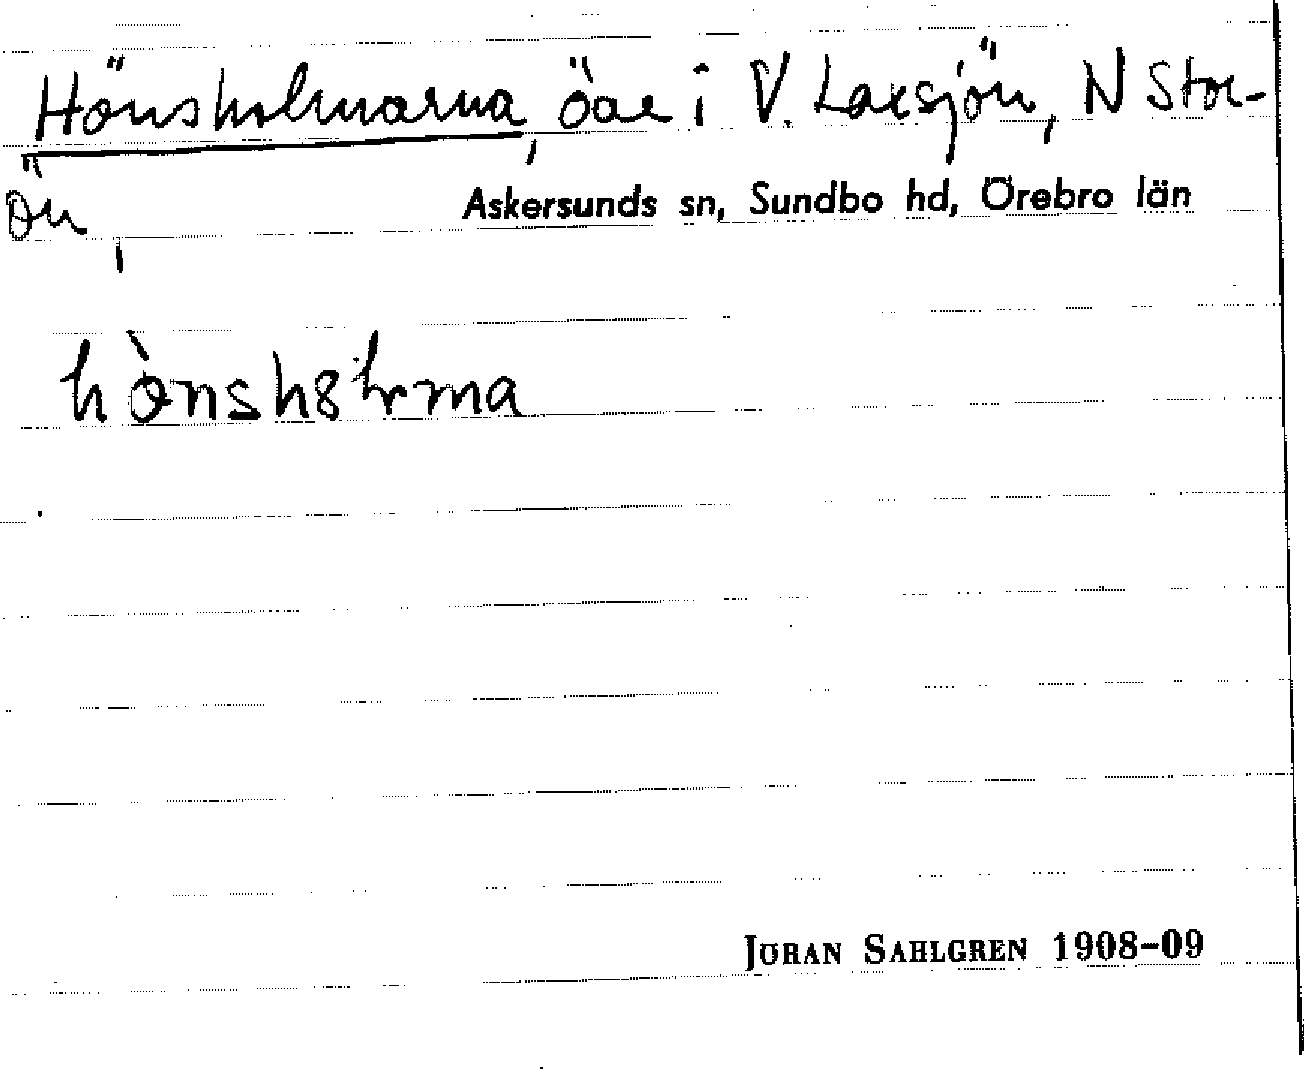 Hönsholmarna, öar i V. Laxsjön, N Stor-
ön,
Askersunds sn, Sundbo hd, Örebro län
JÖRAN SAHLGREN 1908-09